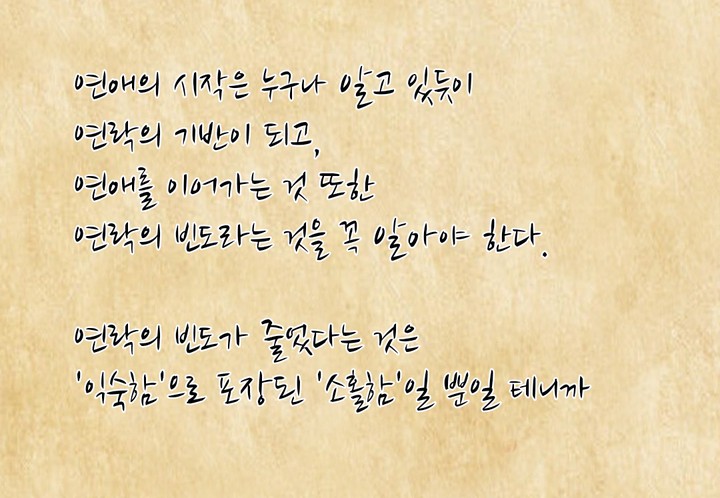 연애의 시작은 누구나 알고 있듯이
연락의 기반이 되고,
연애를 이어가는 것 또한
연락의 빈도라는 것을 꼭 알아야 한다.
연락의 빈도가 줄었다는 것은
'익숙함'으로 포장된 '소홀함'일 뿐일 테니까